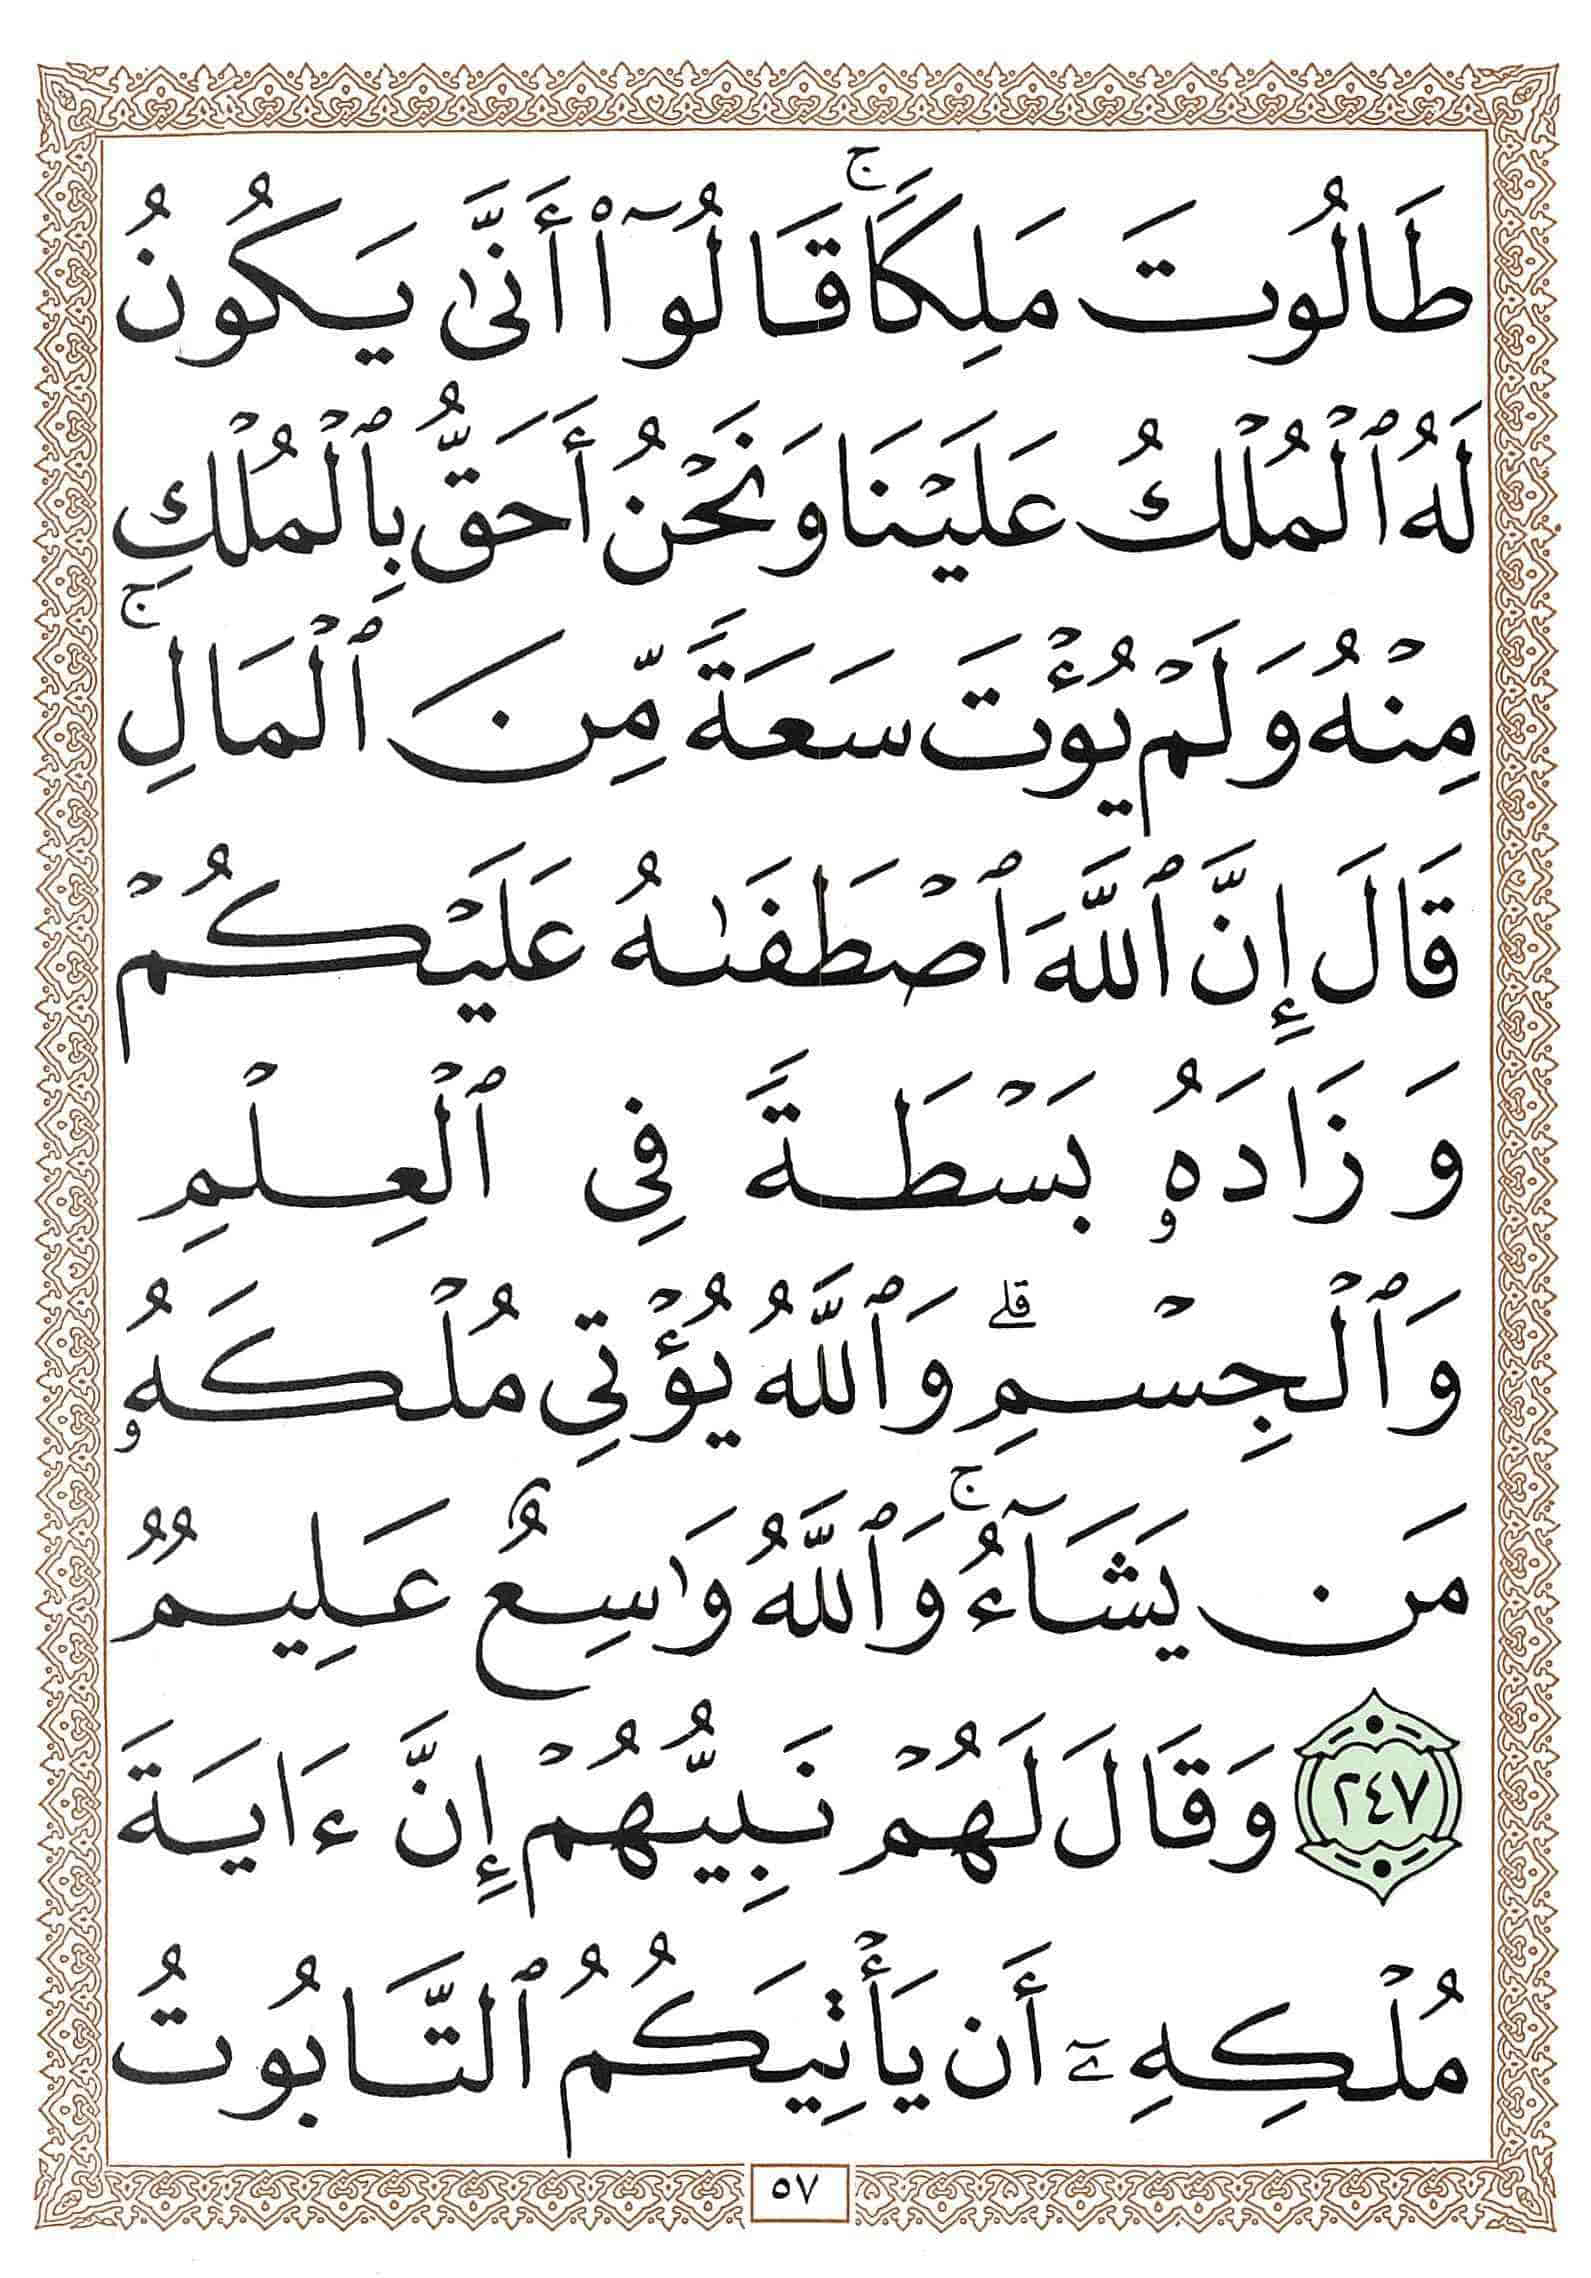 طَالُوتَ مَلِكًاۚ قَالُوٓا۟ أَنَّىٰ يَكُونُ
لَهُ ٱلْمُلْكُ عَلَيْنَا وَنَحْنُ أَحَقُّ بِٱلْمُلْكِ
مِنْهُ وَلَمْ يُؤْتَ سَعَةً مِّنَ ٱلْمَالِۚ
قَالَ إِنَّ ٱللَّهَ ٱصْطَفَىٰهُ عَلَيْكُمْ
وَزَادَهُۥ بَسْطَةً فِى ٱلْعِلْمِ
وَٱلْجِسْمِۖ وَٱللَّهُ يُؤْتِى مُلْكَهُۥ
مَن يَشَآءُۚ وَٱللَّهُ وَٰسِعٌ عَلِيمٌ
٢٤٧ وَقَالَ لَهُمْ نَبِيُّهُمْ إِنَّ ءَايَةَ
مُلْكِهِۦٓ أَن يَأْتِيَكُمُ ٱلتَّابُوتُ
٥٧